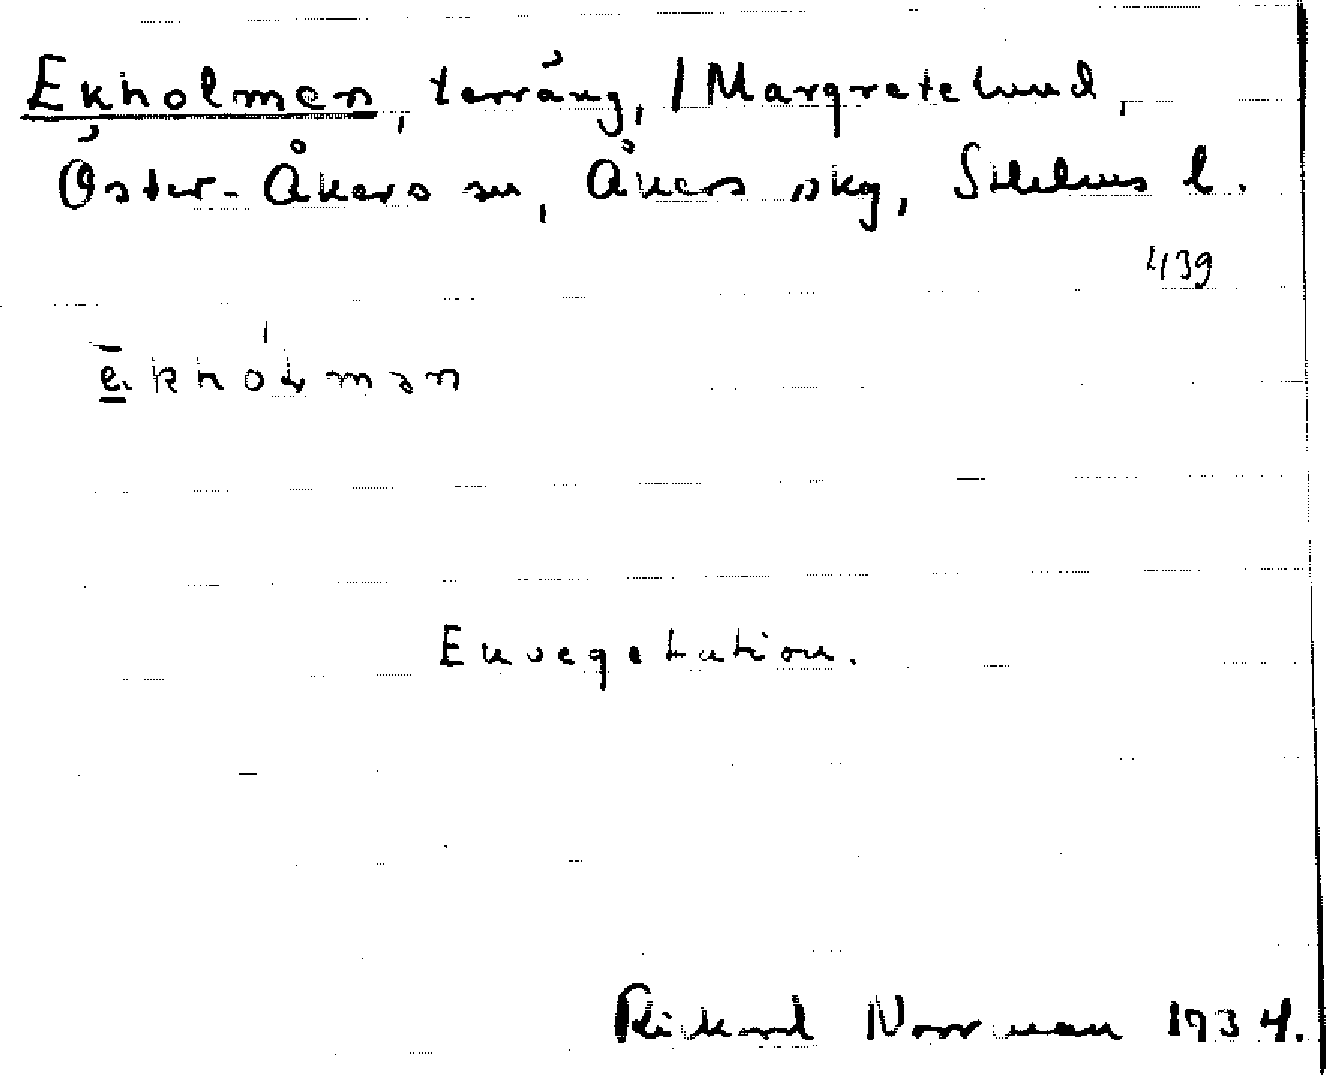 Ekholmen, terräng, / Margretelund,
Öster-Åkers sn, Åkers skg, Sthlms l.
439
ēkhólmən
Ekvegetation.
Rickard Norrman 1934.